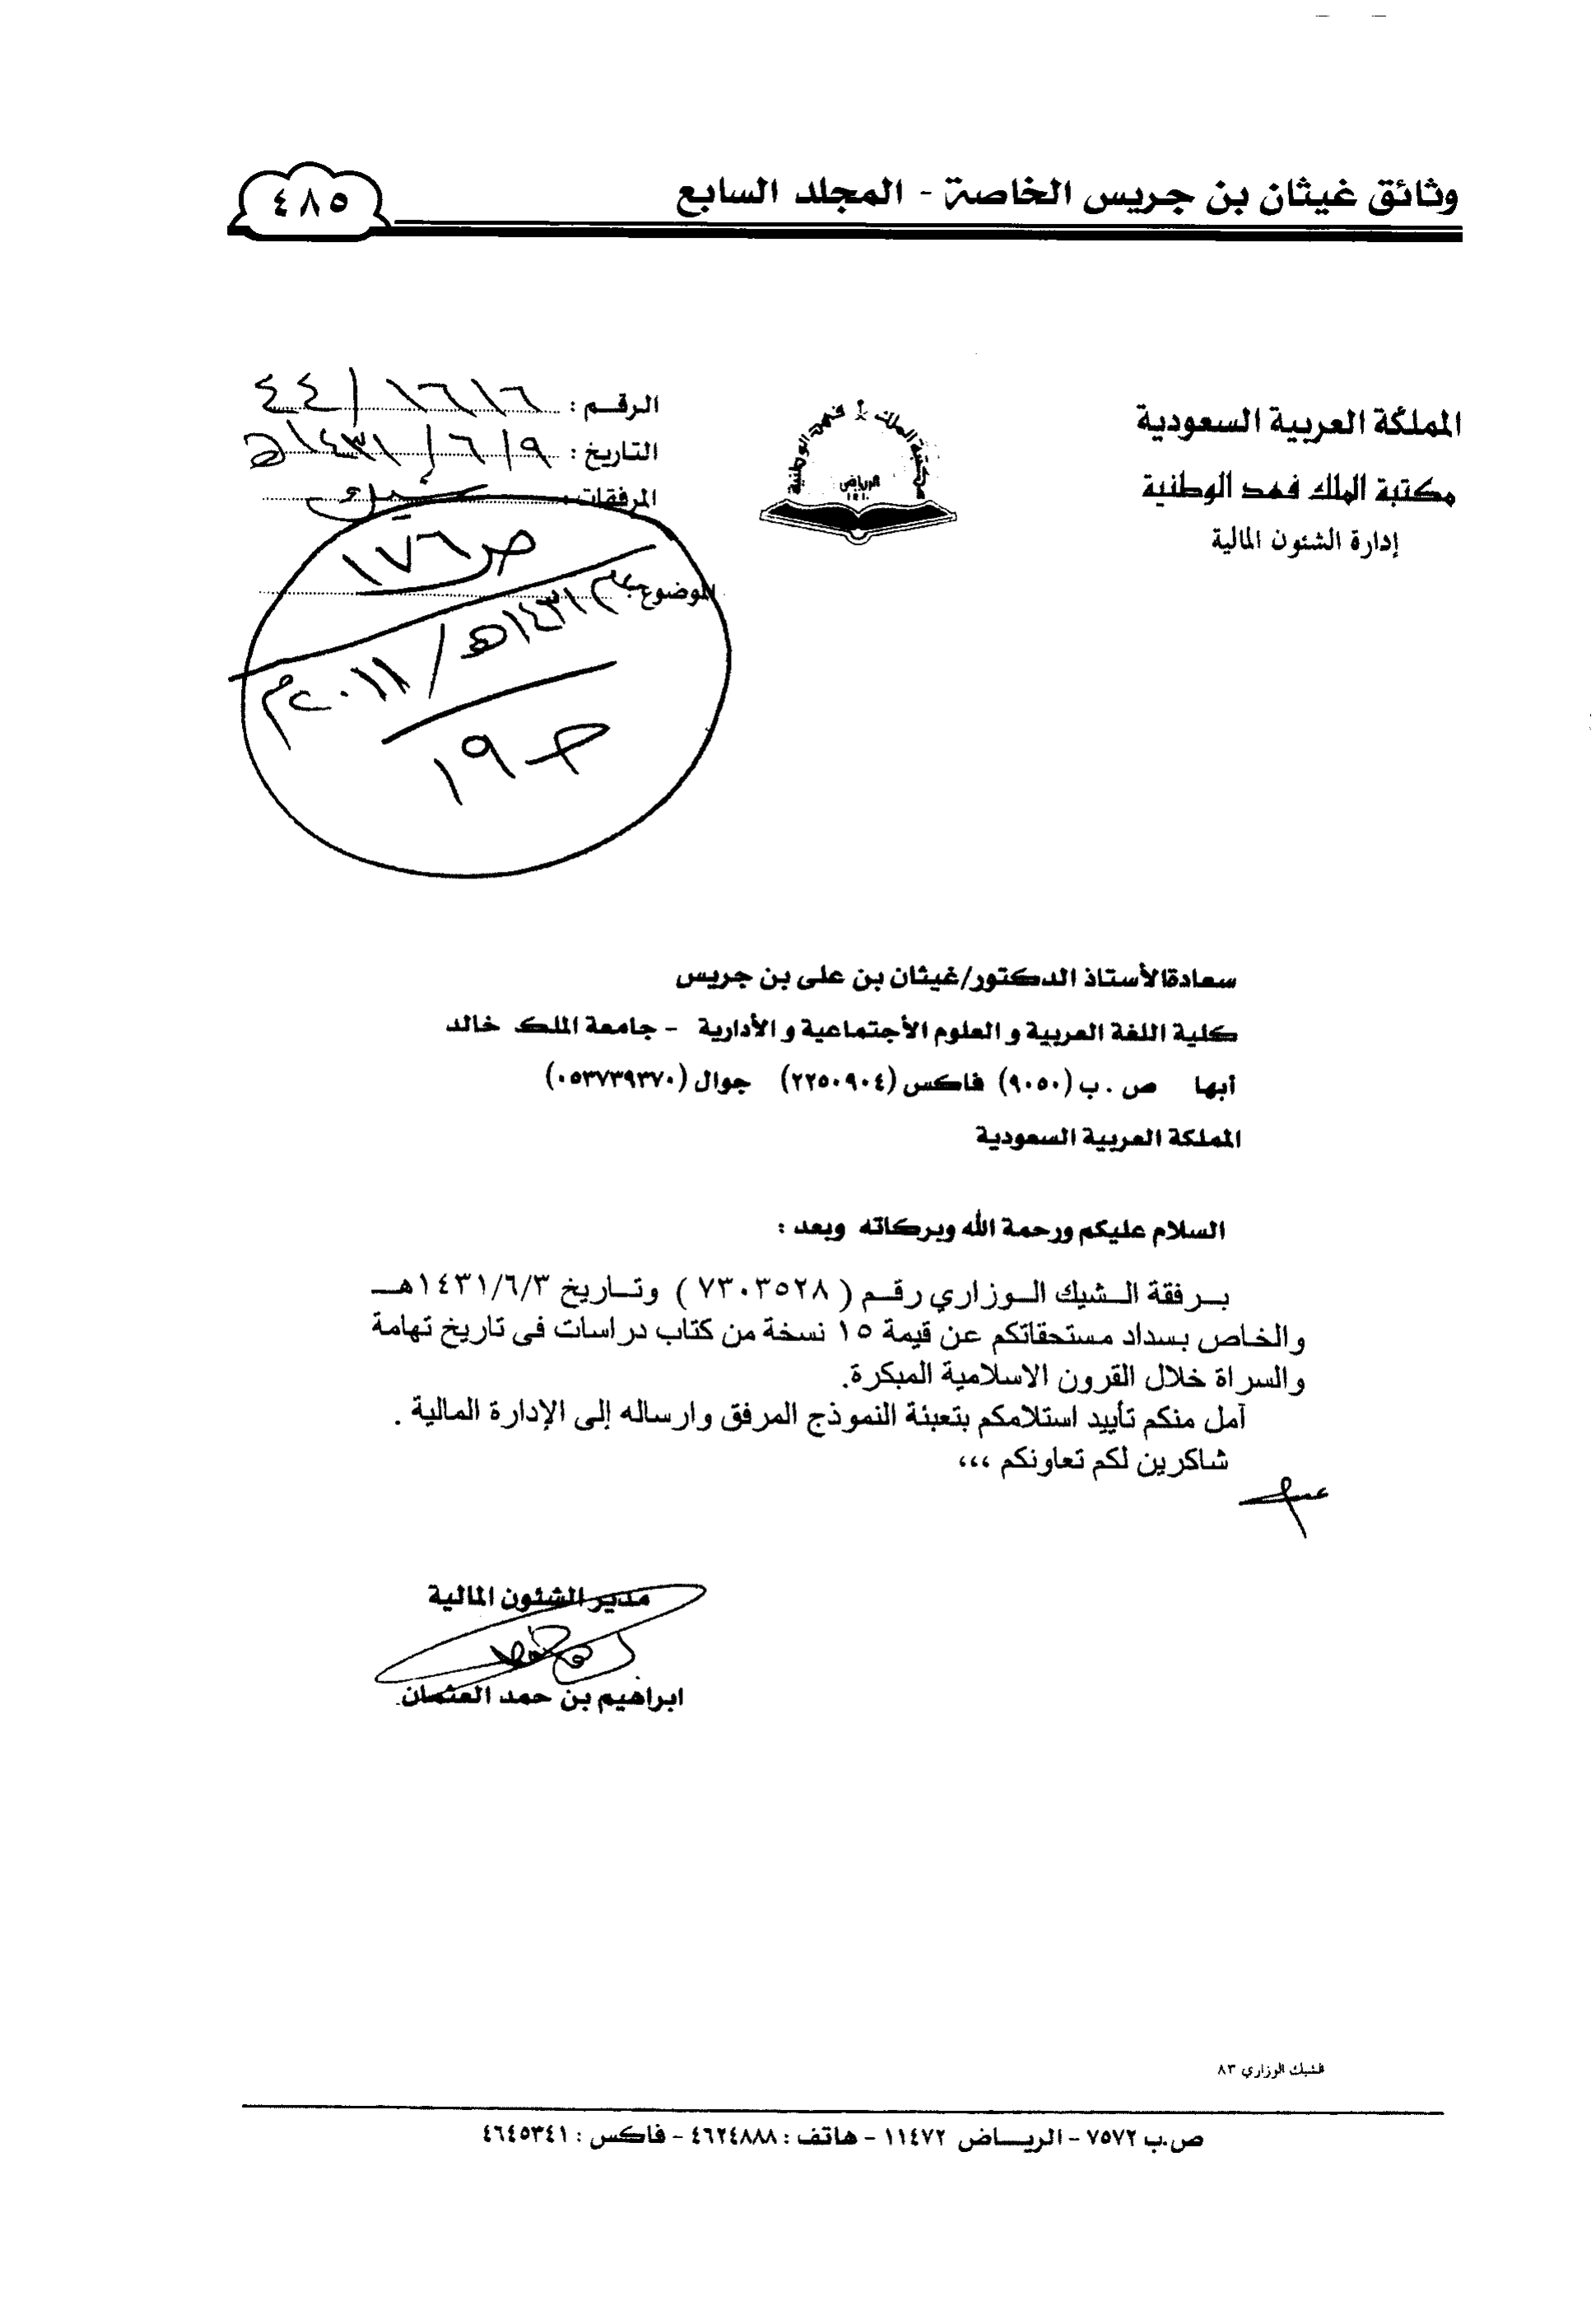 وثائق غيثان بن جريس الخاصة - المجلد السابع
٤٨٥
المملكة العربية السعودية
مكتبة الملك فهد الوطنية
إدارة الشئون المالية
مكتبة الملك فهد الوطنية
الرياض
الرقم : ٤٤/١٦١٦
التاريخ : ١٤٣١/٦/٩هـ
المرفقات : شيك
الموضوع :
ص١٧٦
عام ١٤٣١هـ / ٢٠١١م
حـ ١٩
سعادةالأستاذ الدكتور/غيثان بن على بن جريس
كلية اللغة العربية و العلوم الأجتماعية و الأدارية - جامعة الملك خالد
أبها ص . ب (٩٠٥٠) فاكس (٢٢٥٠٩٠٤) جوال (٠٥٣٧٣٩٣٧٠)
المملكة العربية السعودية
السلام عليكم ورحمة الله وبركاته وبعد :
برفقة الشيك الوزاري رقم ( ٧٣٠٣٥٢٨ ) وتاريخ ١٤٣١/٦/٣هـ
والخاص بسداد مستحقاتكم عن قيمة ١٥ نسخة من كتاب دراسات فى تاريخ تهامة
والسراة خلال القرون الاسلامية المبكرة.
آمل منكم تأييد استلامكم بتعبئة النموذج المرفق وارساله إلى الإدارة المالية .
شاكرين لكم تعاونكم ،،،
مدير الشئون المالية
ابراهيم بن حمد العثمان.
الشيك الوزاري ٨٣
ص.ب ٧٥٧٢ - الريـاض ١١٤٧٢ - هاتف : ٤٦٢٤٨٨٨ - فاكس : ٤٦٤٥٣٤١